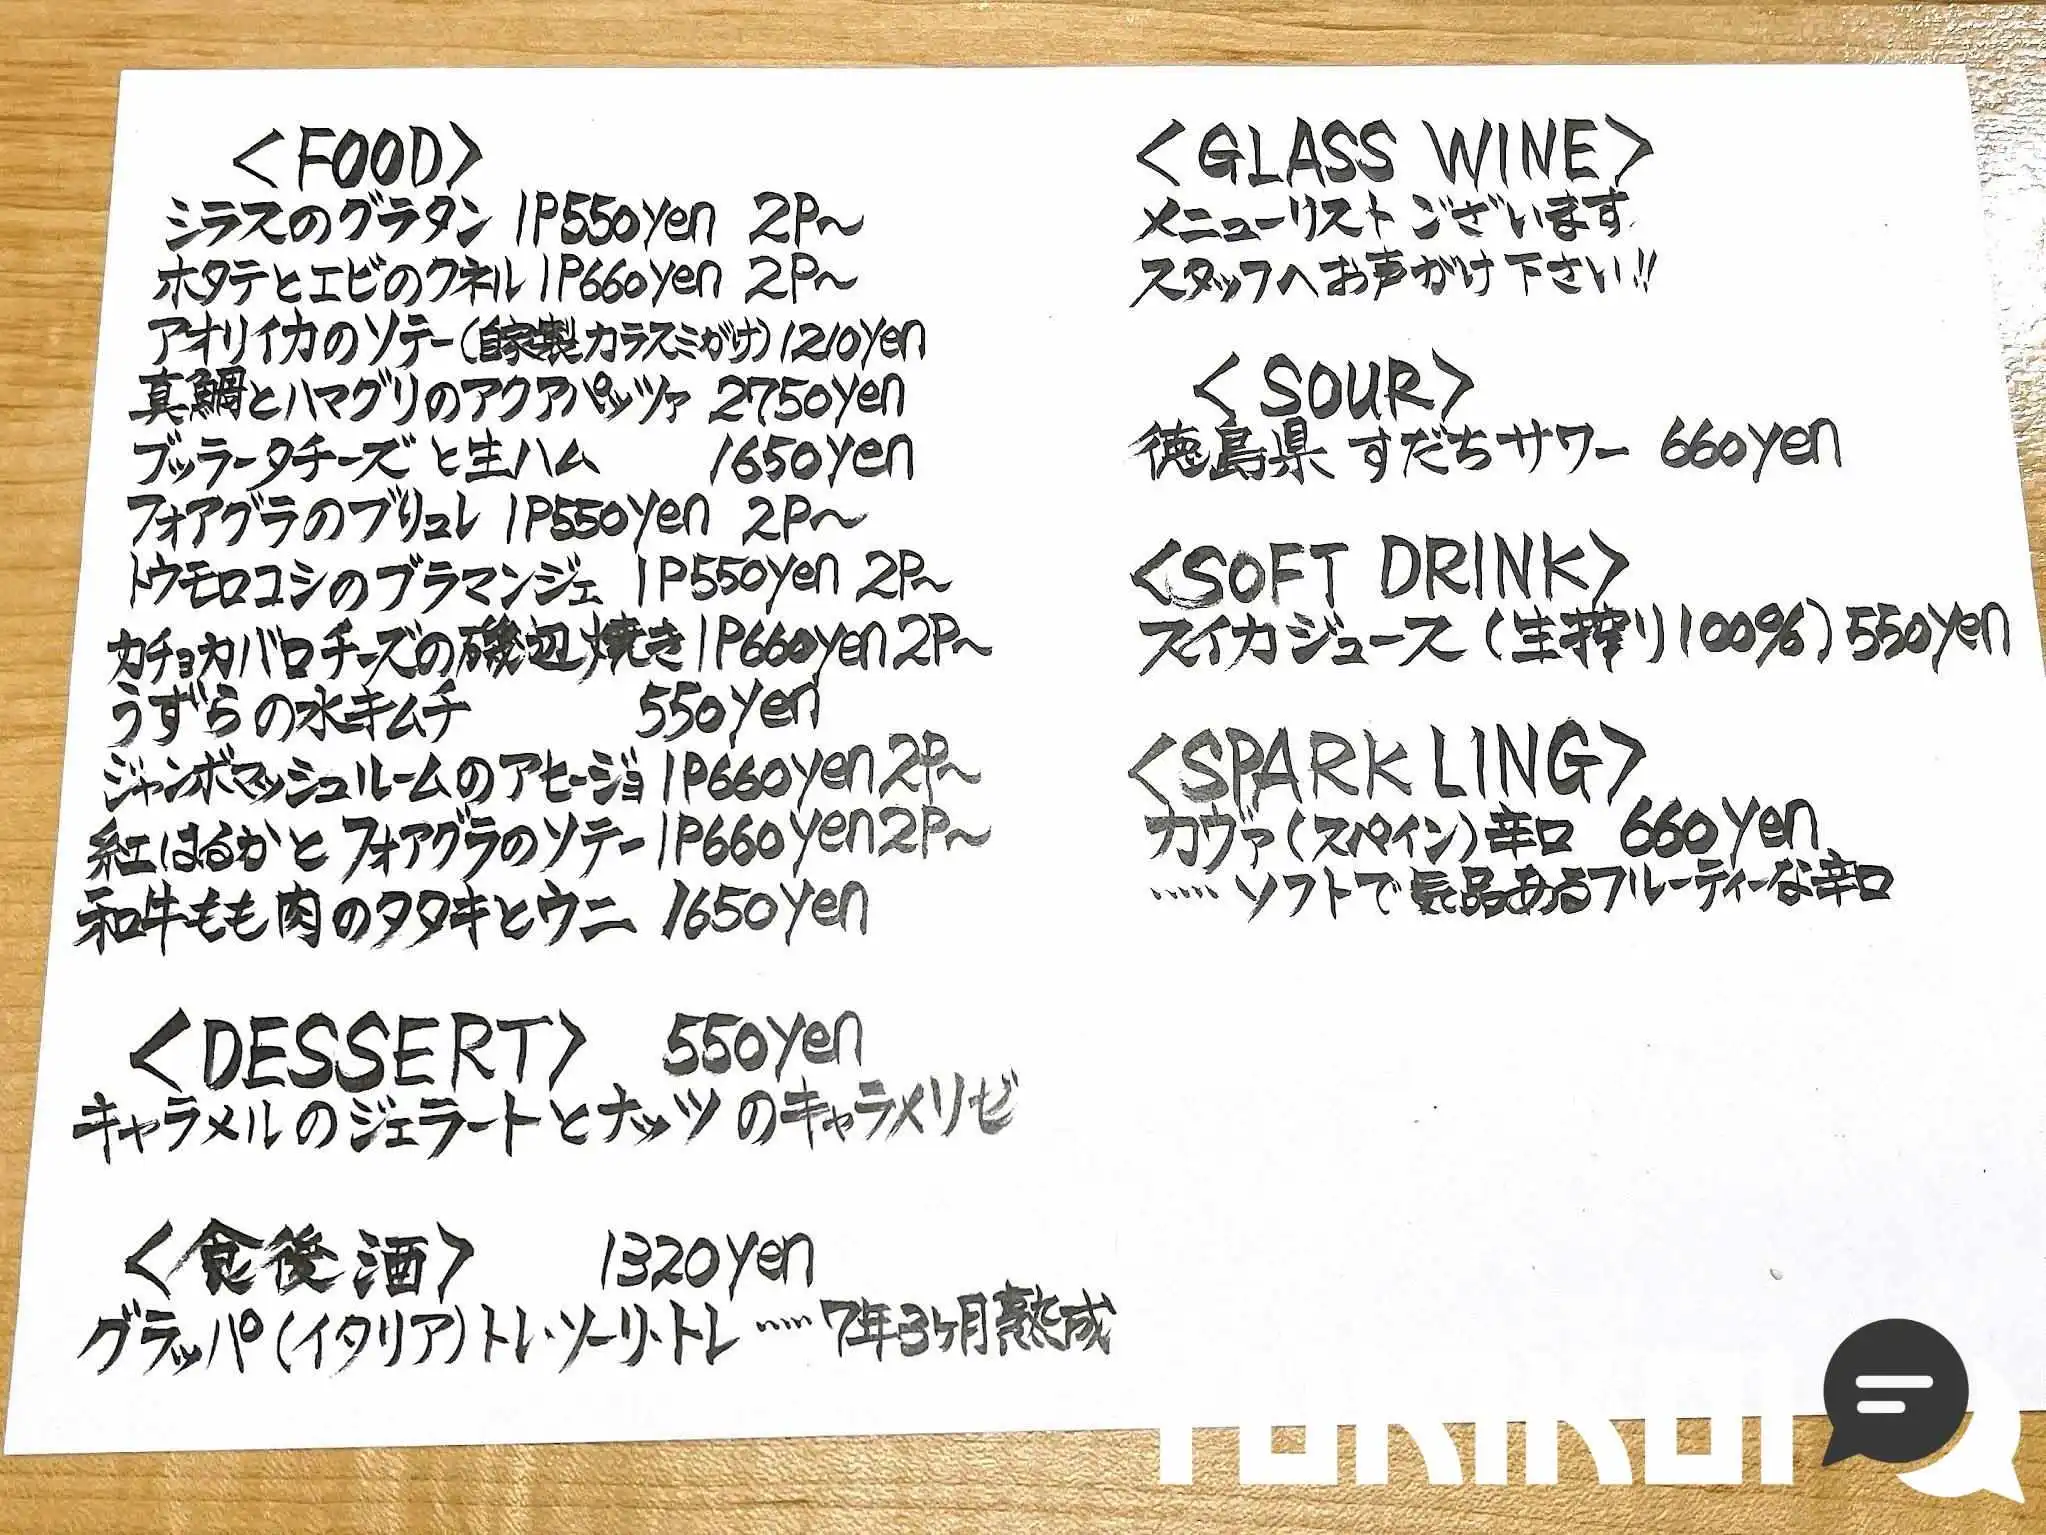 <FOOD>
シラスのグラタン 1P550yen 2P〜
ホタテとエビのクネル 1P660yen 2P〜
アオリイカのソテー(自家製カラスミがけ)1210yen
真鯛とハマグリのアクアパッツァ 2750yen
ブッラータチーズと生ハム 1650yen
フォアグラのブリュレ 1P550yen 2P〜
トウモロコシのブラマンジェ 1P550yen 2P〜
カチョカバロチーズの磯辺焼き 1P660yen 2P〜
うずらの水キムチ 550yen
ジャンボマッシュルームのアヒージョ 1P660yen 2P〜
紅はるかとフォアグラのソテー 1P660yen 2P〜
和牛もも肉のタタキとウニ 1650yen
<DESSERT> 550yen
キャラメルのジェラートとナッツのキャラメリゼ
<食後酒> 1320yen
グラッパ(イタリア)トレ・ソーリ・トレ……7年3ヶ月熟成
<GLASS WINE>
メニューリストございます
スタッフへお声がけ下さい!!
<SOUR>
徳島県 すだちサワー 660yen
<SOFT DRINK>
スイカジュース(生搾り100%)550yen
<SPARKLING>
カヴァ(スペイン)辛口 660yen
……ソフトで気品あるフルーティーな辛口